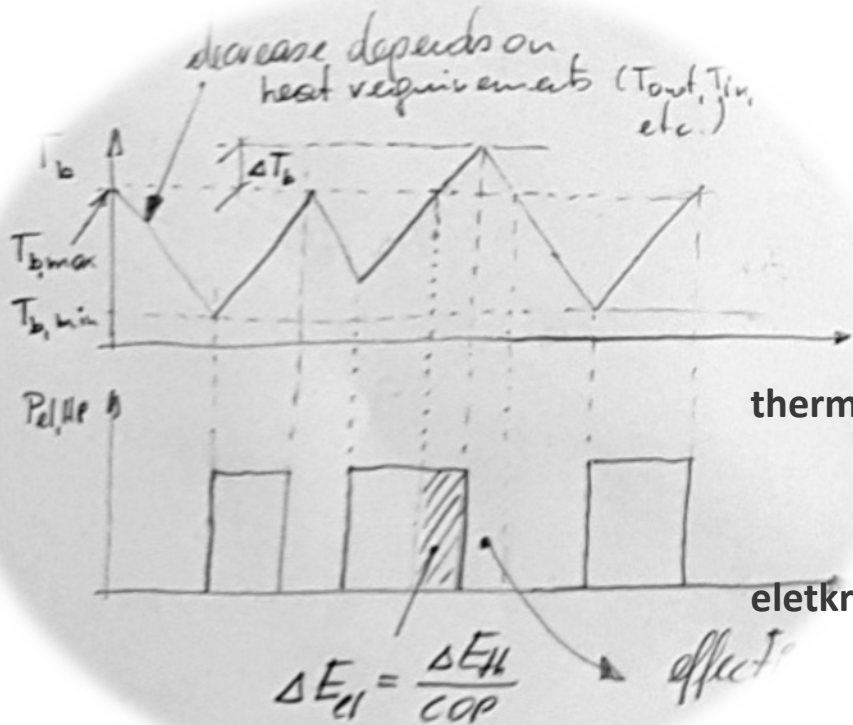 decrease depends on
heat requirements (Tout, Tin,
etc.)
Tb
ΔTb
Tb,max
Tb,min
Pel,HP
therm
eletkr
ΔEel = ΔEH / COP
effect